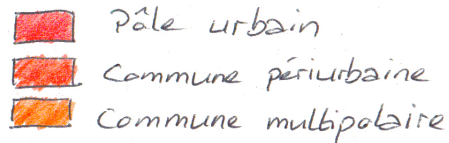 Pôle urbain
Commune périurbaine
Commune multipolaire